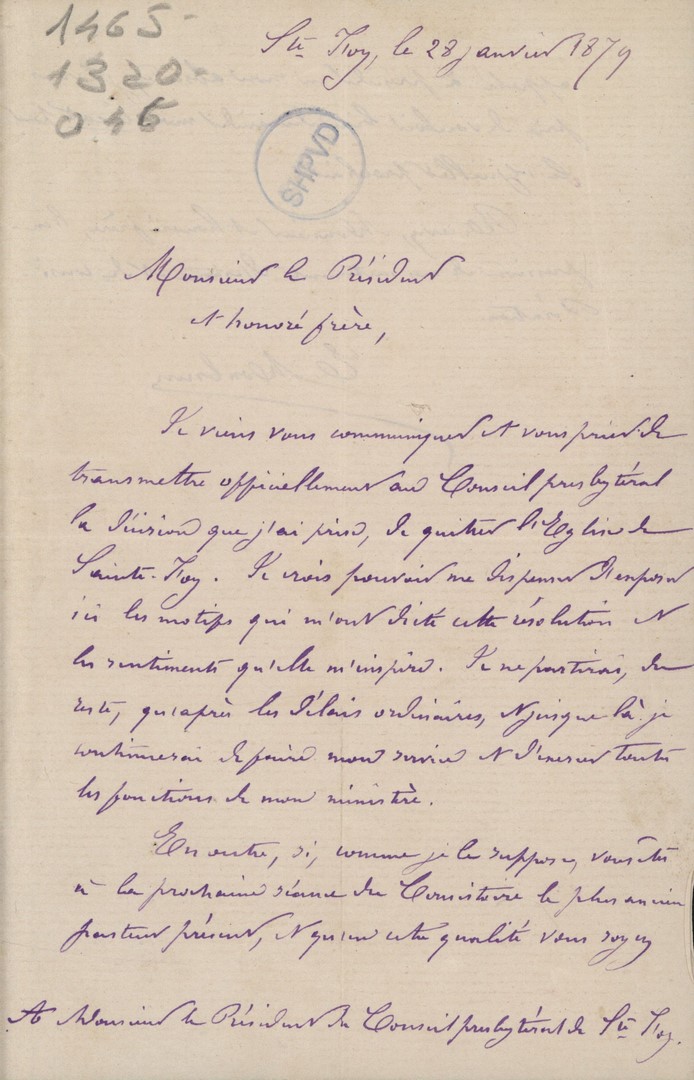 1465
1320
046
Ste Foy, le 28 janvier 1879
SHPVD
Monsieur le Président
et honoré frère,
Je viens vous communiquer et vous prier de
transmettre officiellement au Conseil presbytéral
la décision que j'ai prise, de quitter l'Eglise de
Sainte-Foy. Je crois pouvoir me dispenser d'exposer
ici les motifs qui m'ont dicté cette résolution et
les sentiments qu'elle m'inspire. Je ne partirai, du
reste, qu'après les délais ordinaires, et jusque là je
continuerai de faire mon service et d'exercer toutes
les fonctions de mon ministère.
En outre, si, comme je le suppose, vous êtes
à la prochaine séance du Consistoire le plus ancien
pasteur présent, et qu'en cette qualité vous soyez
A Monsieur le Président du Conseil presbytéral de Ste Foy.